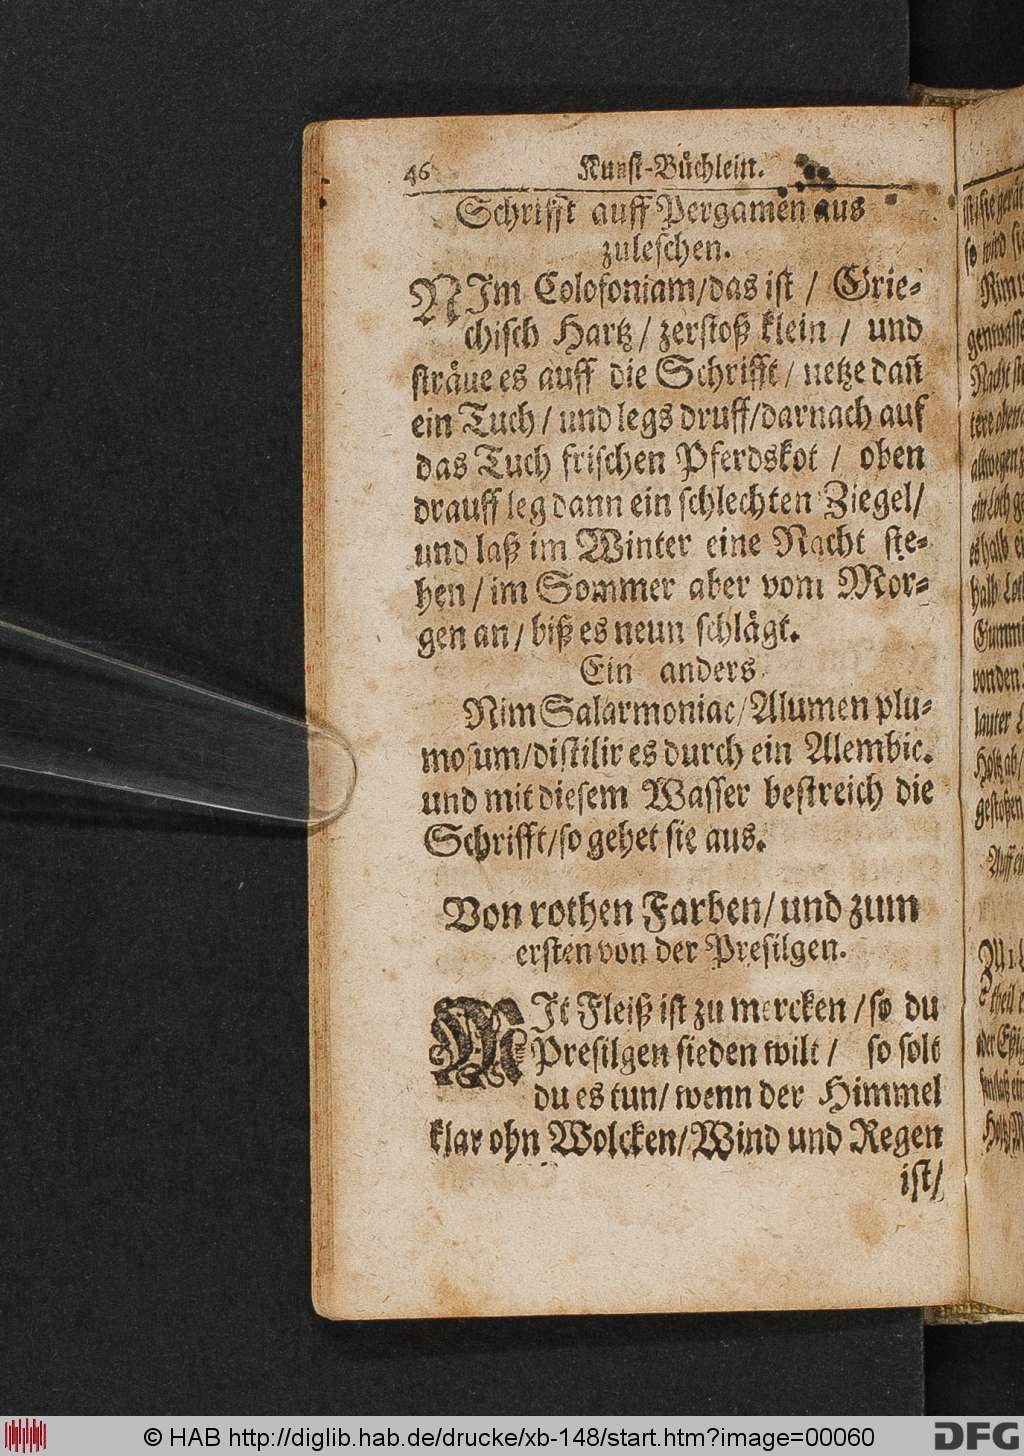 46 Kunst-Büchlein.
Schrifft auff Pergamen aus
zuleschen.
NIm Colofoniam/das ist / Grie-
chisch Hartz / zerstoß klein / und
sträue es auff die Schrifft / netze dañ
ein Tuch / und legs druff/darnach auf
das Tuch frischen Pferdskot / oben
drauff leg dann ein schlechten Ziegel/
und laß im Winter eine Nacht ste-
hen / im Sommer aber vom Mor-
gen an / biß es neun schlägt.
Ein anders
Nim Salarmoniac/Alumen plu-
mosum/distilir es durch ein Alembic.
und mit diesem Wasser bestreich die
Schrifft/so gehet sie aus.
Von rothen Farben/und zum
ersten von der Presilgen.
MIt Fleiß ist zu mercken / so du
Presilgen sieden wilt / so solt
du es tun/ wenn der Himmel
klar ohn Wolcken/Wind und Regen
ist/
so wird
Nim
genwasse
Nacht
allwegen
ein Loch
es halb
halb Lot
Gummi
von den
lauter
Holtz ab/
gestoßen
Auff
theil
der Essig
Holtz/
© HAB http://diglib.hab.de/drucke/xb-148/start.htm?image=00060
DFG